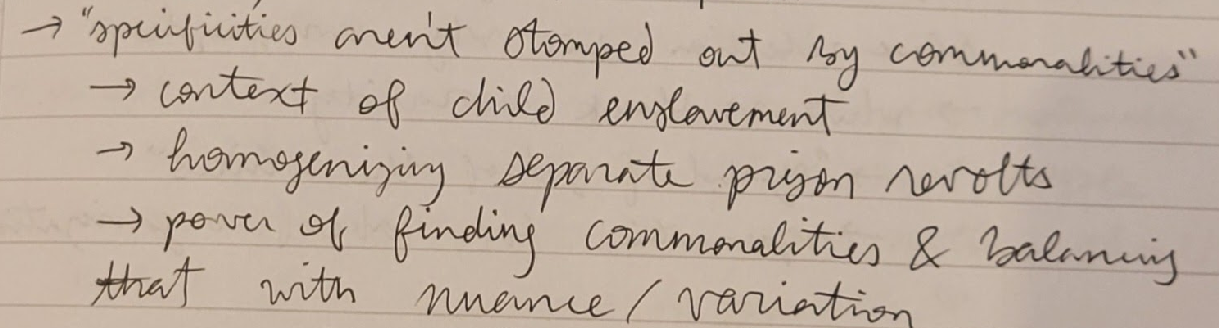 → "specificities aren't stomped out by commonalities"
→ context of child enslavement
→ homogenizing separate prison revolts
→ power of finding commonalities & balancing
that with nuance / variation